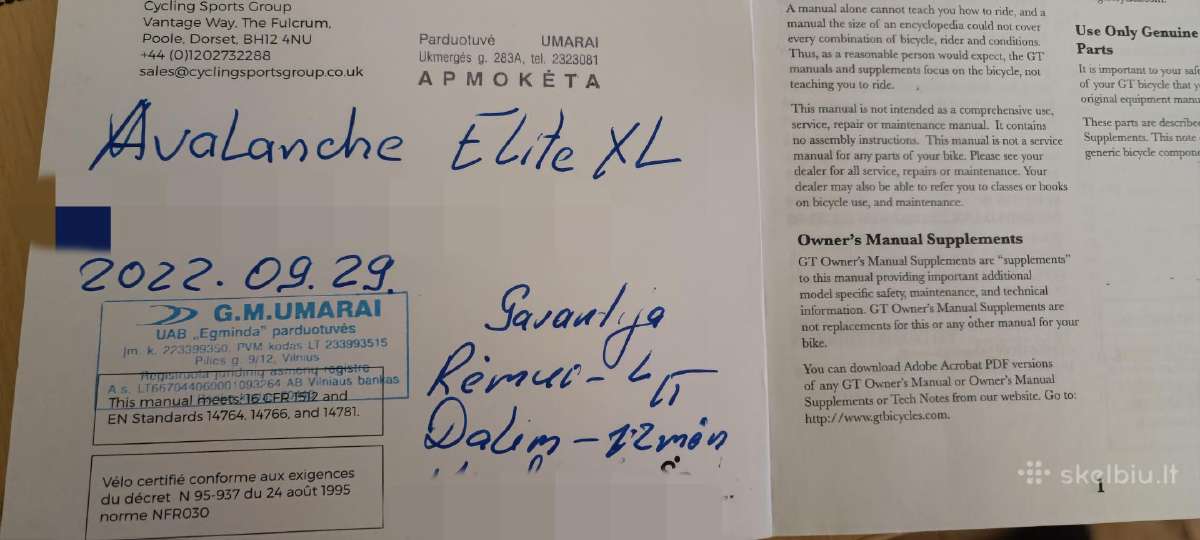 Cycling Sports Group
Vantage Way, The Fulcrum,
Poole, Dorset, BH12 4NU
+44 (0)1202732288
sales@cyclingsportsgroup.co.uk
Parduotuvė UMARAI
Ukmergės g. 283A, tel. 2323081
APMOKĖTA
Avalanche Elite XL
2022.09.29.
G.M.UMARAI
UAB „Egminda” parduotuvės
Įm. k. 223399350, PVM kodas LT 233993515
Pilies g. 9/12, Vilnius
Registruota juridinių asmenų registre
A.s. LT667044060001093264 AB Vilniaus bankas
This manual meets: 16 CFR 1512 and
EN Standards 14764, 14766, and 14781.
Vélo certifié conforme aux exigences
du décret N 95-937 du 24 août 1995
norme NFR030
Garantija
Rėmui -
Dalim - 12 mėn
A manual alone cannot teach you how to ride, and a
manual the size of an encyclopedia could not cover
every combination of bicycle, rider and conditions.
Thus, as a reasonable person would expect, the GT
manuals and supplements focus on the bicycle, not
teaching you to ride.
This manual is not intended as a comprehensive use,
service, repair or maintenance manual. It contains
no assembly instructions. This manual is not a service
manual for any parts of your bike. Please see your
dealer for all service, repairs or maintenance. Your
dealer may also be able to refer you to classes or books
on bicycle use, and maintenance.
Owner's Manual Supplements
GT Owner's Manual Supplements are “supplements”
to this manual providing important additional
model specific safety, maintenance, and technical
information. GT Owner's Manual Supplements are
not replacements for this or any other manual for your
bike.
You can download Adobe Acrobat PDF versions
of any GT Owner's Manual or Owner's Manual
Supplements or Tech Notes from our website. Go to:
http://www.gtbicycles.com.
Use Only Genuine
Parts
It is important to your
of your GT bicycle that
original equipment
These parts are
Supplements. This note
generic bicycle
skelbiu.lt
1